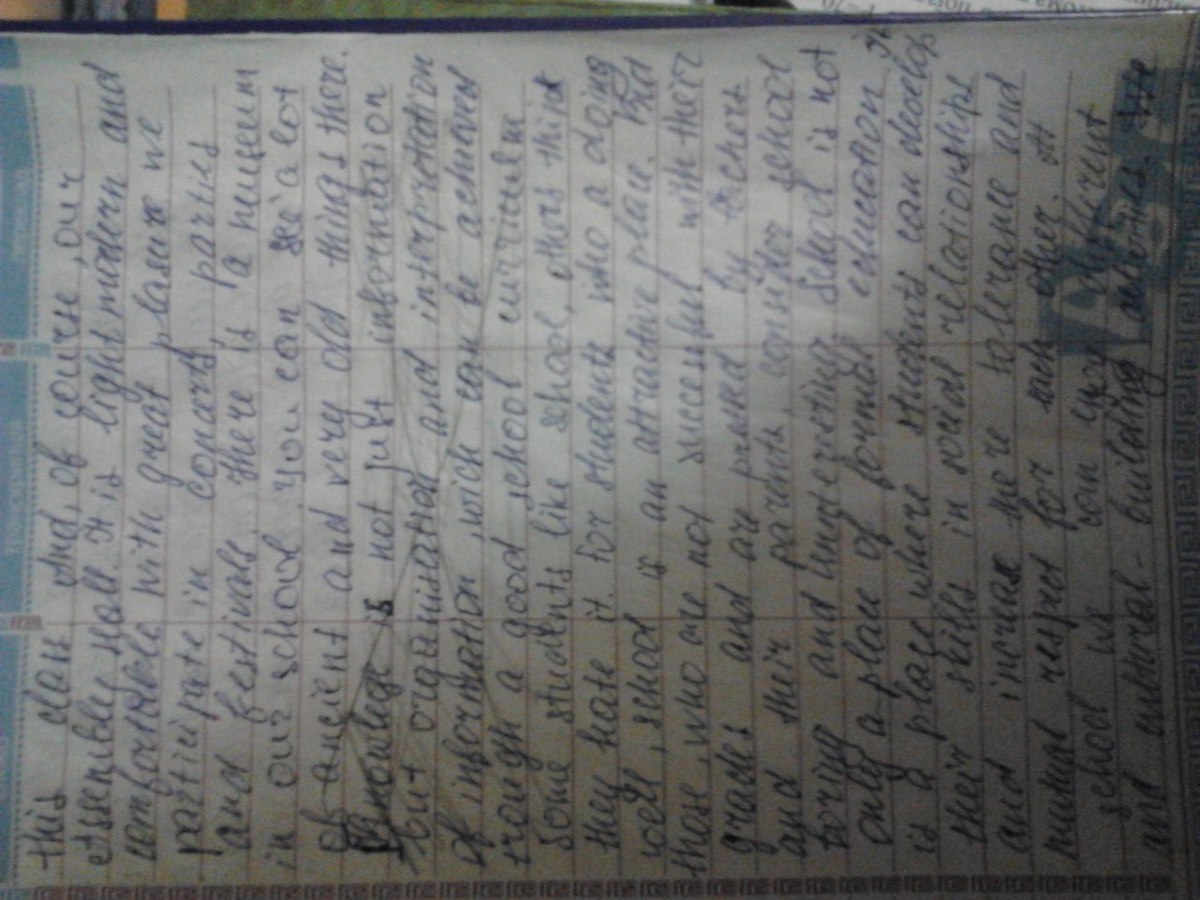 this class. And, of course, our
assembly hall. It is light modern and
comfortable. With great plasure we
participate in concerts, parties
and festivals. There is a museum
in our school, you can see a lot
of ancient and very old things there.
Knowledge is not just information
but organisation and interpretation
of information, wich can be achieved
trough a good school curriculm
Some students like school, others think
they hate it. For students who a doing
well, school is an attractive place. But
those, who are not successful with their
grades and are praised by teachers
and their parents, consider school
boring and uninteresting. School is not
only a place of formal education. It
is a place where students can develop
their skills in social relationships
and increase there tolerance and
mutual respect for each other. At
school we can enjoy different
and cultural-building activities.